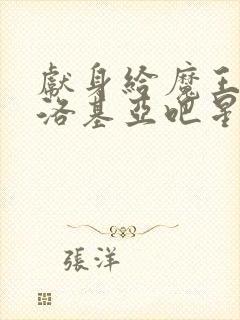 獻身給魔王
洛基亞吧星
張洋